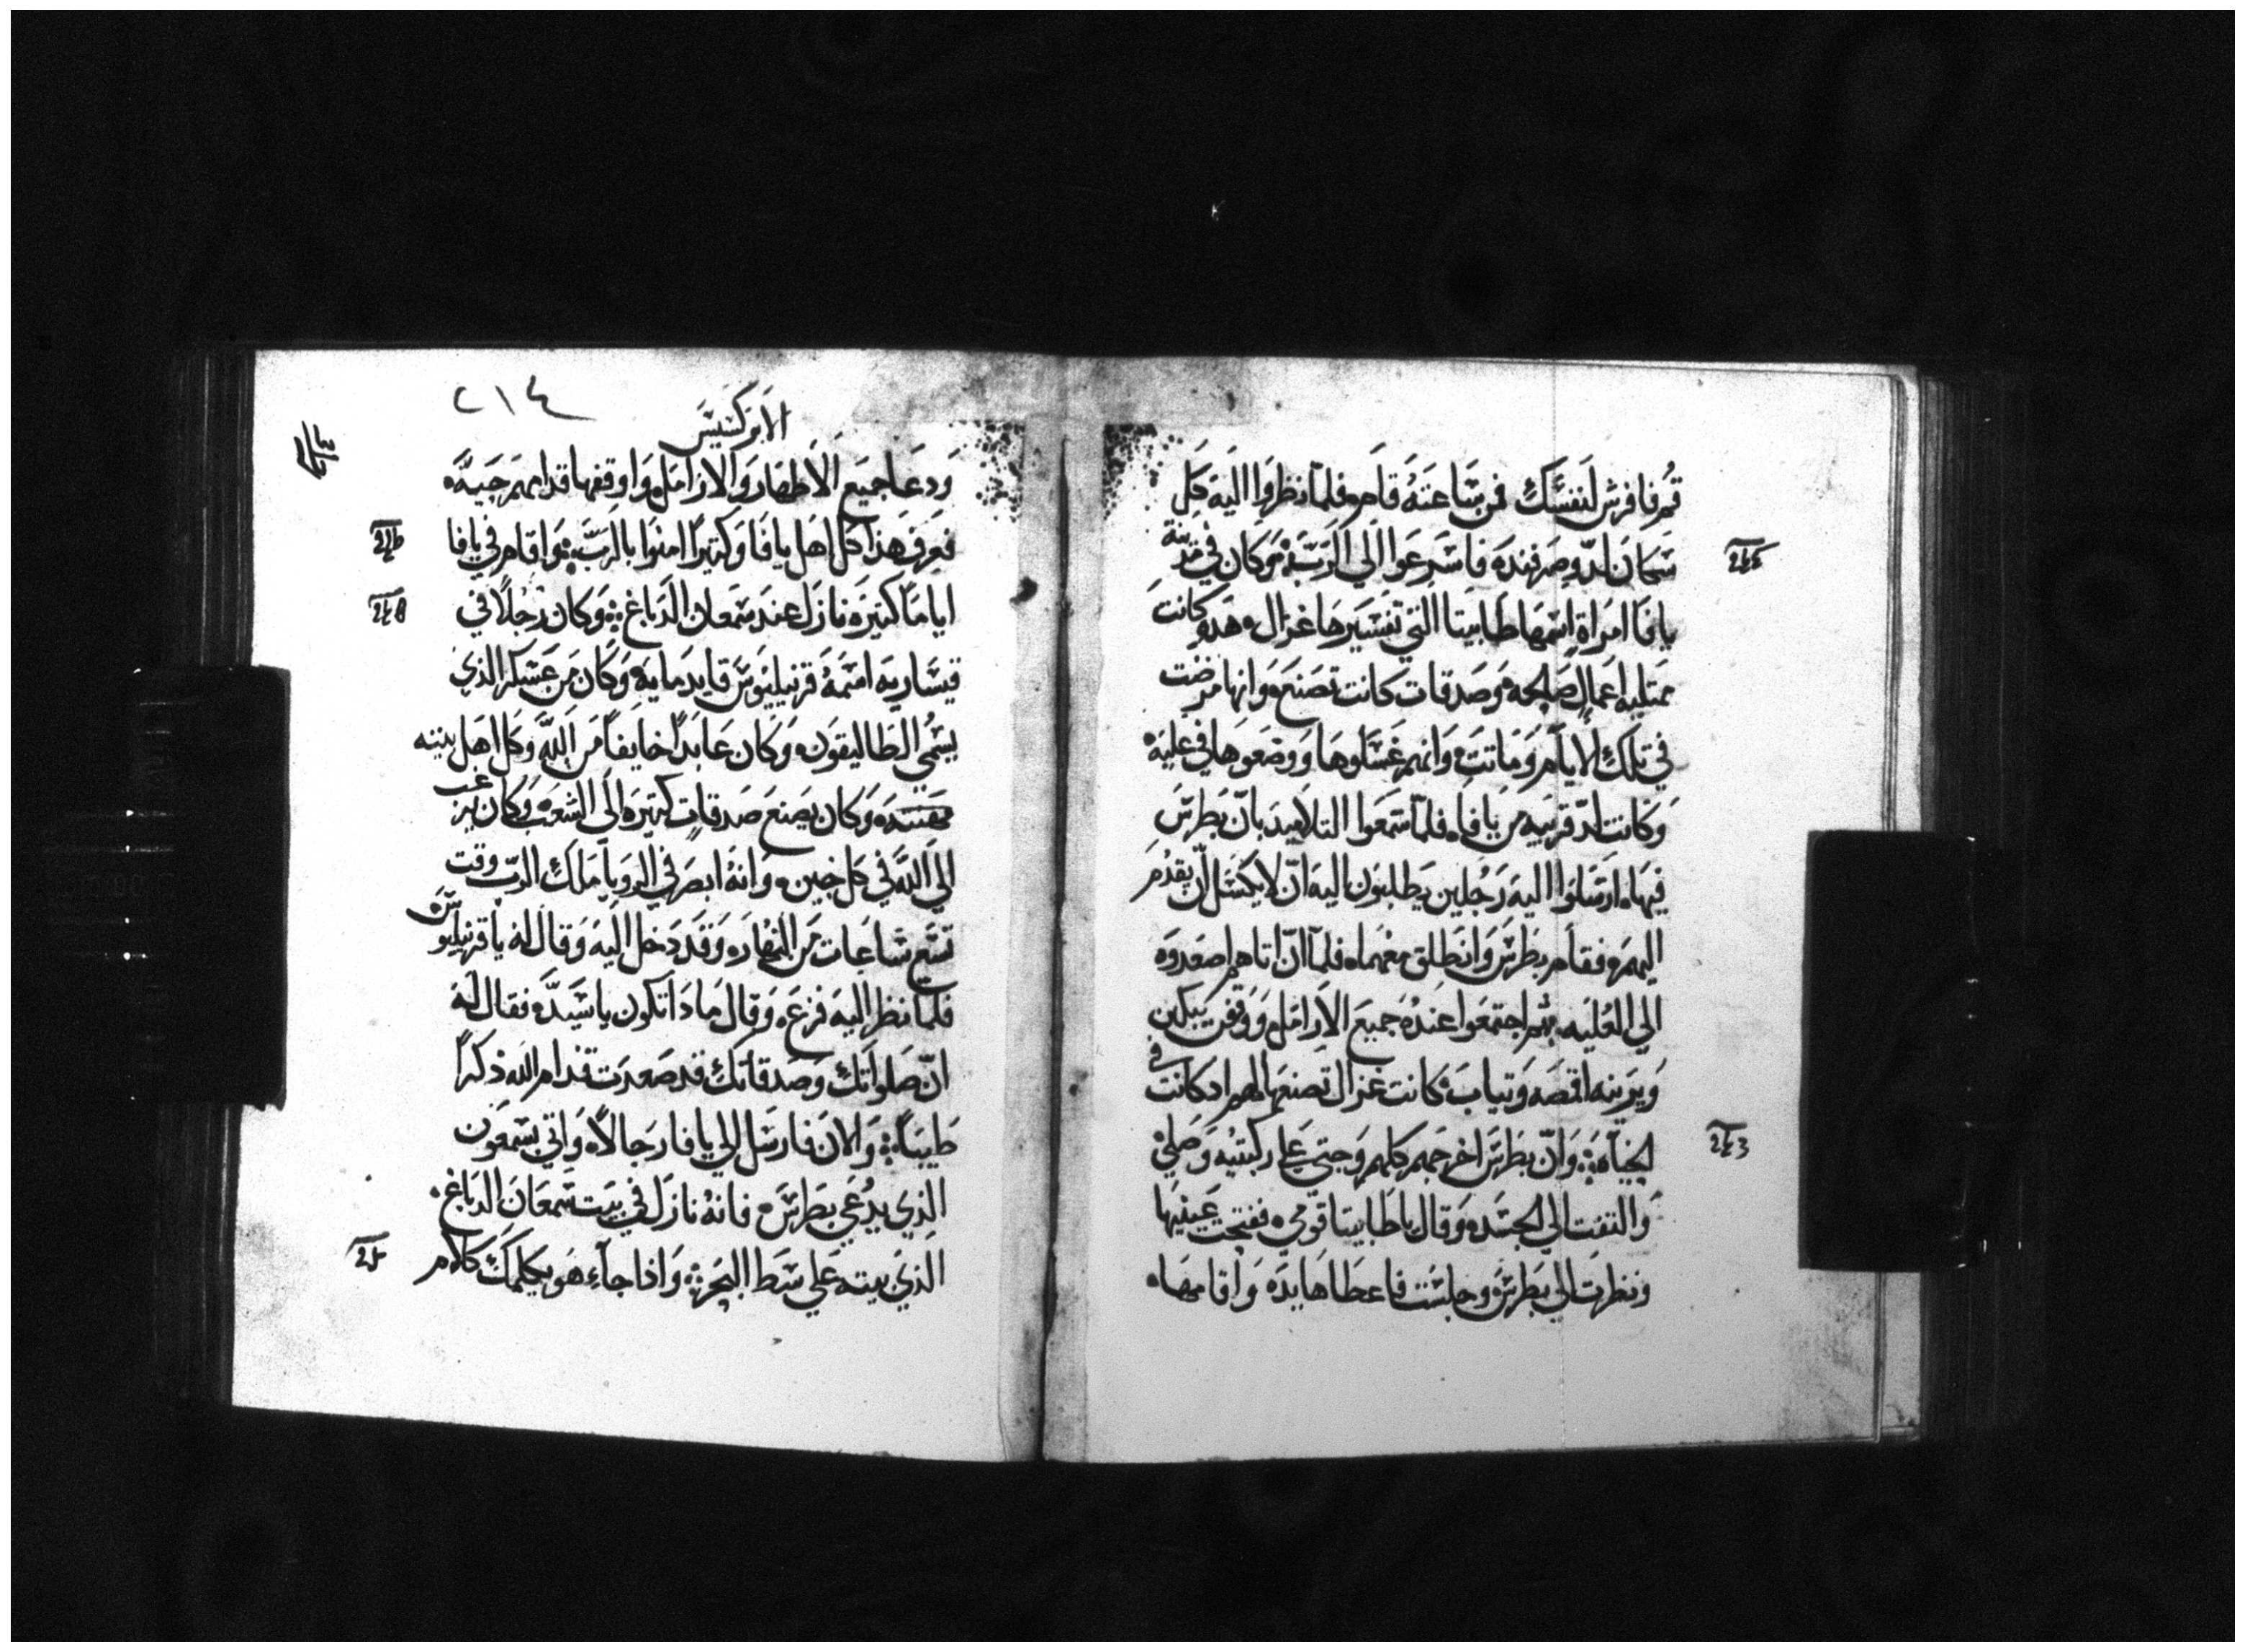 قم فافرش لنفسك فمن ساعته قام فلما نظروا اليه كل
سكان لد وصرفنده فاسرعوا الي الرب وكان في مدينة
يافا امراة اسمها طابيتا التي تفسيرها غزال هده كانت
ممتليه اعمال صالحه وصدقات كانت تصنع وانها مرضت
في تلك الايام وماتت وانهم غسلوها ووضعوها في عليه
وكانت لد قريبه من يافا فلما سمعوا التلاميد بان بطرس
فيها ارسلوا اليه رجلين يطلبون اليه ان لا يكسل ان يقدم
اليهم فقام بطرس وانطلق معهما فلما ان اتاهم اصعدوه
الي العليه ثم اجتمعوا عنده جميع الارامل ووقفن يبكين
ويرينه اقمصه وتياب كانت غزال تصنعها لهم اد كانت في
الحياه وان بطرس اخرجهم كلهم وجتي علي ركبتيه وصلي
والتفت الي الجسد وقال يا طابيتا قومي ففتحت عينيها
ونظرت الي بطرس وجلست فاعطاها يده واقامها
٢١٤
الابركسيس
ودعا جميع الاطهار والارامل واوقفها قدامهم حيه
فعرف هذا كل اهل يافا وكتيرا امنوا بالرب واقام في يافا
اياما كتيره نازل عند سمعان الدباغ وكان رجلا في
قيساريه اسمه قرنيليوس قايد مايه وكان من عسكر الذي
يسمي الطاليقون وكان عابدا خايفا من الله وكل اهل بيته
وكان يصنع صدقات كتيره الي الشعب وكان يرغب
الي الله في كل حين وانه ابصر في الرويا ملك الرب وقت
تسع ساعات من النهار وقد دخل اليه وقال له يا قرنيليوس
فلما نظر اليه فزع وقال مادا تكون يا سيد فقال له
ان صلواتك وصدقاتك قد صعدت قدام الله ذكرا
طيبا والان فارسل الي يافا رجالا واتي بسمعون
الذي يدعي بطرس فانه نازل في بيت سمعان الدباغ
الذي بيته علي شط البحر واذا جاء هو يكلمك كلام